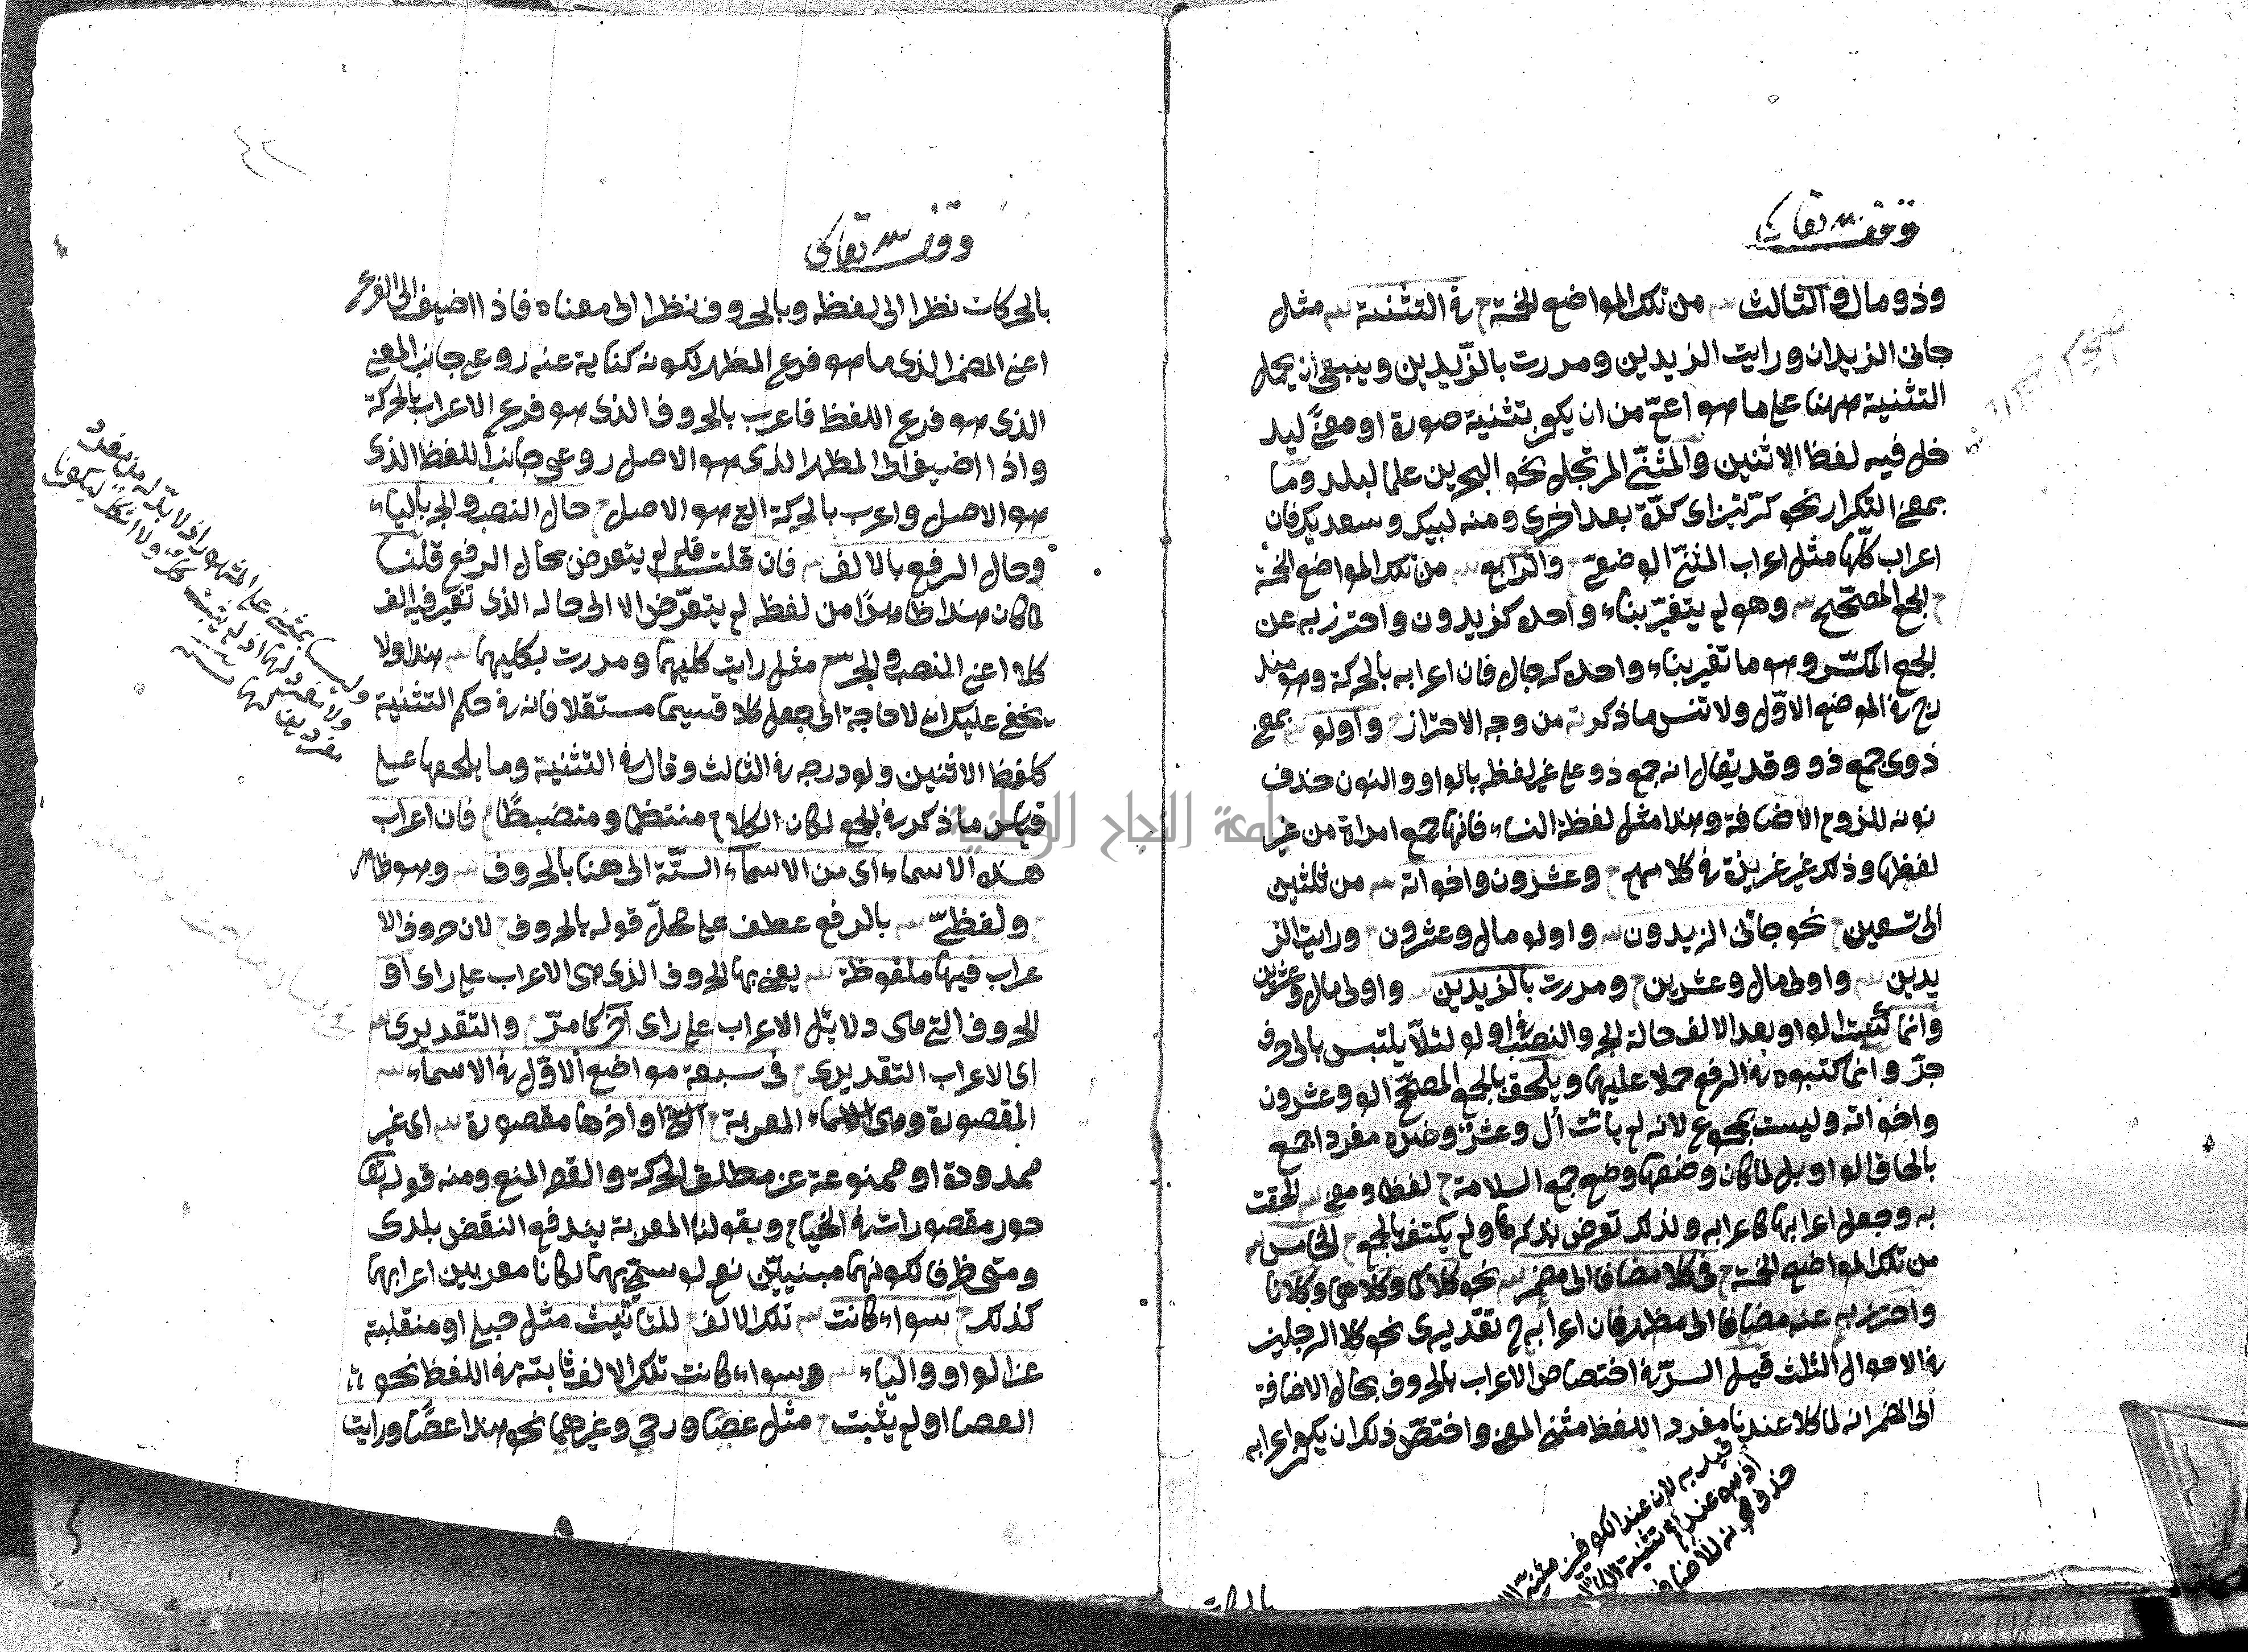 وقف لله تعالى
وذو مال والثالث من تلك المواضع الخمسة في التثنية مثل
جائنى الزيدان ورايت الزيدين ومررت بالزيدين وينبغى ان يحمل
التثنية ههنا على ما هو اعمّ من ان يكون تثنية صورة او معنًى ليد
خل فيه لفظ الاثنين والمثنّى المرتجل نحو البحرين علما لبلد وما
بمعنى التكرار نحو كرّتين اى كرّة بعد اخرى ومنه لبيك وسعديك فان
اعراب كلّها مثل اعراب المثنّى الوضعى والرابع من تلك المواضع الخمسة
الجمع المصحّح وهو لم يتغيّر بناء واحده كزيدون واحترز به عن
الجمع المكسّر وهو ما تغير بناء واحده كرجال فان اعرابه بالحركة وهو مند
رج في الموضع الاوّل ولا تنس ما ذكرته من وجه الاحتراز واولو بمعنى
ذوى جمع ذو وقد يقال انه جمع ذو على غير لفظه بالواو والنون حذف
نونه للزوم الاضافة وهذا مثل لفظة النساء فانها جمع امراة من غير
لفظها وذلك غير عزيزة في كلامهم وعشرون واخواته من ثلثين
الى تسعين نحو جائنى الزيدون واولو مال وعشرون ورايت الز
يدين واولى مال وعشرين ومررت بالزيدين واولى مال وعشرين
وانما كتبت الواو بعد الالف حالة الجر والنصب في اولو لئلّا يلتبس بالى حرف
جرّ وانما كتبوه في الرفع حملا عليهما ويلحق بالجمع المصحّح الو وعشرون
واخواته وليست بجموع لانه لم يات أل وعشر وضده مفردا جمع
بالحاق الواو بل لما كان وضعها وضع جمع السلامة لفظا ومعنى الحقت
به وجعل اعرابها كاعرابه ولذلك تعرض بذكرها ولم يكتف بالجمع الخامس
من تلك المواضع الخمسة في كلا مضافا الى مضمر نحو كلاكما وكلاهما وكلانا
واحترز به عنه مضافا الى مظهر فان اعرابه ح تقديرى نحو كلا الرجلين
في الاحوال الثلث قيل السرّ في اختصاص الاعراب بالحروف بحال الاضافة
الى المضمر انه لما كلا عندنا مفرد اللفظ مثنى المعنى واختصّ ذلك ان يكون اعرابه
قيد به لان عند الكوفيين مثنى
اذ هو عندهم تثنية
حذف نونه للاضافة
وقف لله تعالى
بالحركات نظرا الى لفظه وبالحروف نظرا الى معناه فاذا اضيف الى الفرع
اعنى المضمر الذى ما هو فرع المظهر لكونه كناية عنه روعى جانب المعنى
الذى هو فرع اللفظ فاعرب بالحروف الذى هو فرع الاعراب بالحركة
واذا اضيف الى المظهر الذى هو الاصل روعى جانب اللفظ الذى
هو الاصل واعرب بالحركة التى هو الاصل حال النصب والجر بالياء
وحال الرفع بالالف فان قلت فلم لم يتعرض بحال الرفع قلنا
لما كان هذا ظاهرًا من لفظه لم يتعرّض الا الى حاله الذى تغير فيه الف
كلا اعنى النصب والجر مثل رايت كليهما ومررت بكليهما هذا ولا
يخفى عليك انه لا حاجة الى جعل كلا قسيما مستقلا فانه في حكم التثنية
كلفظ الاثنين ولو درجه في الثالث وقال في التثنية وما يلحقها على
قياس ما ذكر في الجمع لكان الكلام منتظما ومنضبطًا فان اعراب
هذه الاسماء اى من الاسماء الستّة الى هنا بالحروف وهو ظاهر
ولفظىّ بالرفع عطف على محلّ قوله بالحروف لان حروف الا
عراب فيها ملفوظة يعنى بها الحروف الذى هى الاعراب على راى او
الحروف التى هى دلائل الاعراب على راى آخر كما مرّ والتقديرى
اى الاعراب التقديرى في سبعة مواضع الاوّل في الاسماء
المقصورة وهى الاسماء المعربة التى اواخرها مقصورة اى غير
ممدودة او ممنوعة عن مطلق الحركة والقصر المنع ومنه قوله تعا
حور مقصورات في الخيام وبقولنا المعربة يندفع النقض بلدى
ومتى ظرفا لكونهما مبنيين نعم لو سمّى بهما لكانا معربين اعرابهما
كذلك سواء كانت تلك الالف للتانيث مثل حبلى او منقلبة
عن الواو والياء وسواء كانت تلك الالف ثابتة في اللفظ نحو
العصا او لم يثبت مثل عصا ورحى وغيرهما نحو هذا عصًا ورايت
وليسا بمثنى على المشهور اذ لا بدّ له من مفرد